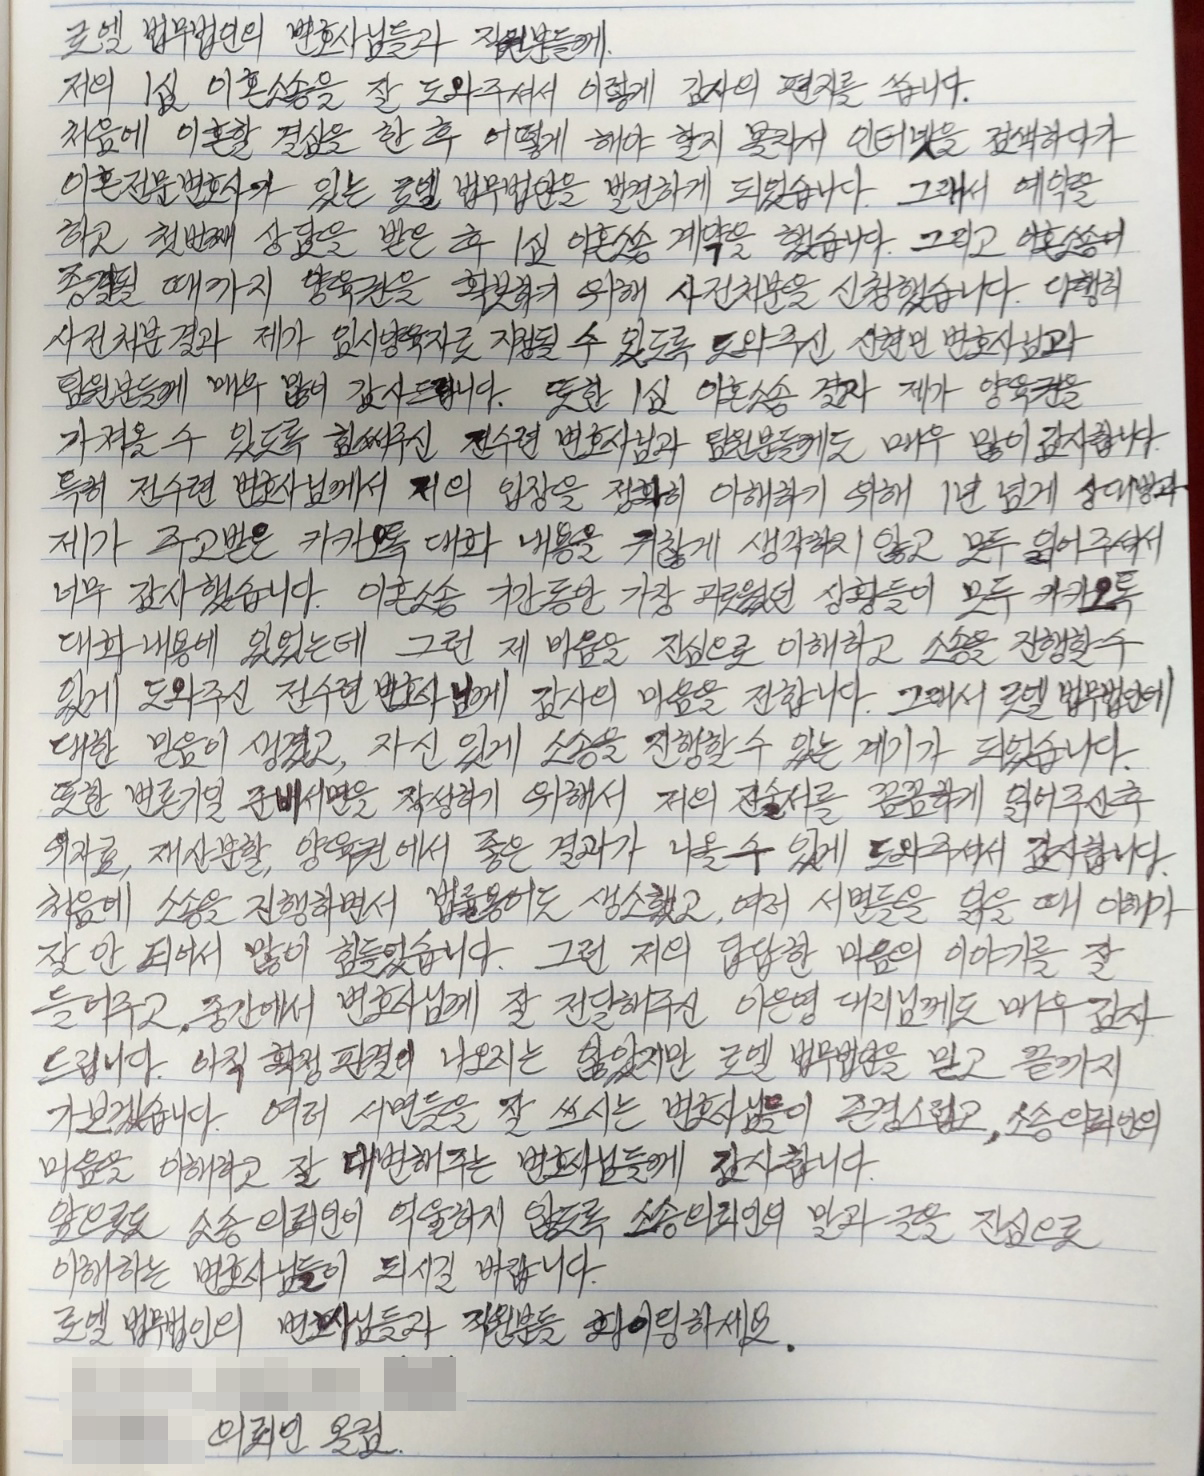 로엘 법무법인의 변호사님들과 직원분들께.
저의 1심 이혼소송을 잘 도와주셔서 이렇게 감사의 편지를 씁니다.
처음에 이혼할 결심을 한 후 어떻게 해야 할지 몰라서 인터넷을 검색하다가
이혼전문변호사가 있는 로엘 법무법인을 발견하게 되었습니다. 그래서 예약을
하고 첫번째 상담을 받은 후 1심 이혼소송 계약을 했습니다. 그리고 이혼소송이
종결될 때까지 양육권을 확보하기 위해 사전처분을 신청했습니다. 다행히
사전처분결과 제가 임시양육자로 지정될 수 있도록 도와주신 신현민 변호사님과
팀원분들께 매우 많이 감사드립니다. 또한 1심 이혼소송 결과 제가 양육권을
가져올 수 있도록 힘써주신 전수련 변호사님과 팀원분들께도 매우 많이 감사합니다.
특히 전수련 변호사님께서 저의 입장을 정확히 이해하기 위해 1년 넘게 상대방과
제가 주고받은 카카오톡 대화 내용을 귀찮게 생각하지 않고 모두 읽어주셔서
너무 감사했습니다. 이혼소송 기간동안 가장 괴로웠던 상황들이 모두 카카오톡
대화내용에 있었는데 그런 제 마음을 진심으로 이해하고 소송을 진행할수
있게 도와주신 전수련 변호사님께 감사의 마음을 전합니다. 그래서 로엘 법무법인에
대한 믿음이 생겼고, 자신 있게 소송을 진행할 수 있는 계기가 되었습니다.
또한 변론기일 준비서면을 작성하기 위해서 저의 진술서를 꼼꼼하게 읽어주신후
위자료, 재산분할, 양육권에서 좋은 결과가 나올 수 있게 도와주셔서 감사합니다.
처음에 소송을 진행하면서 법률용어도 생소했고, 여러 서면들을 읽을 때 이해가
잘 안 되어서 많이 힘들었습니다. 그런 저의 답답한 마음의 이야기를 잘
들어주고, 중간에서 변호사님께 잘 전달해주신 이은영 대리님께도 매우 감사
드립니다. 아직 확정 판결이 나오지는 않았지만 로엘 법무법인을 믿고 끝까지
가보겠습니다. 여러 서면들을 잘 쓰시는 변호사님들이 존경스럽고, 소송의뢰인의
마음을 이해하고 잘 대변해주는 변호사님들께 감사합니다.
앞으로도 소송의뢰인이 억울하지 않도록 소송의뢰인의 말과 글을 진심으로
이해하는 변호사님들이 되시길 바랍니다.
로엘 법무법인의 변호사님들과 직원분들 화이팅하세요.
의뢰인 올림.